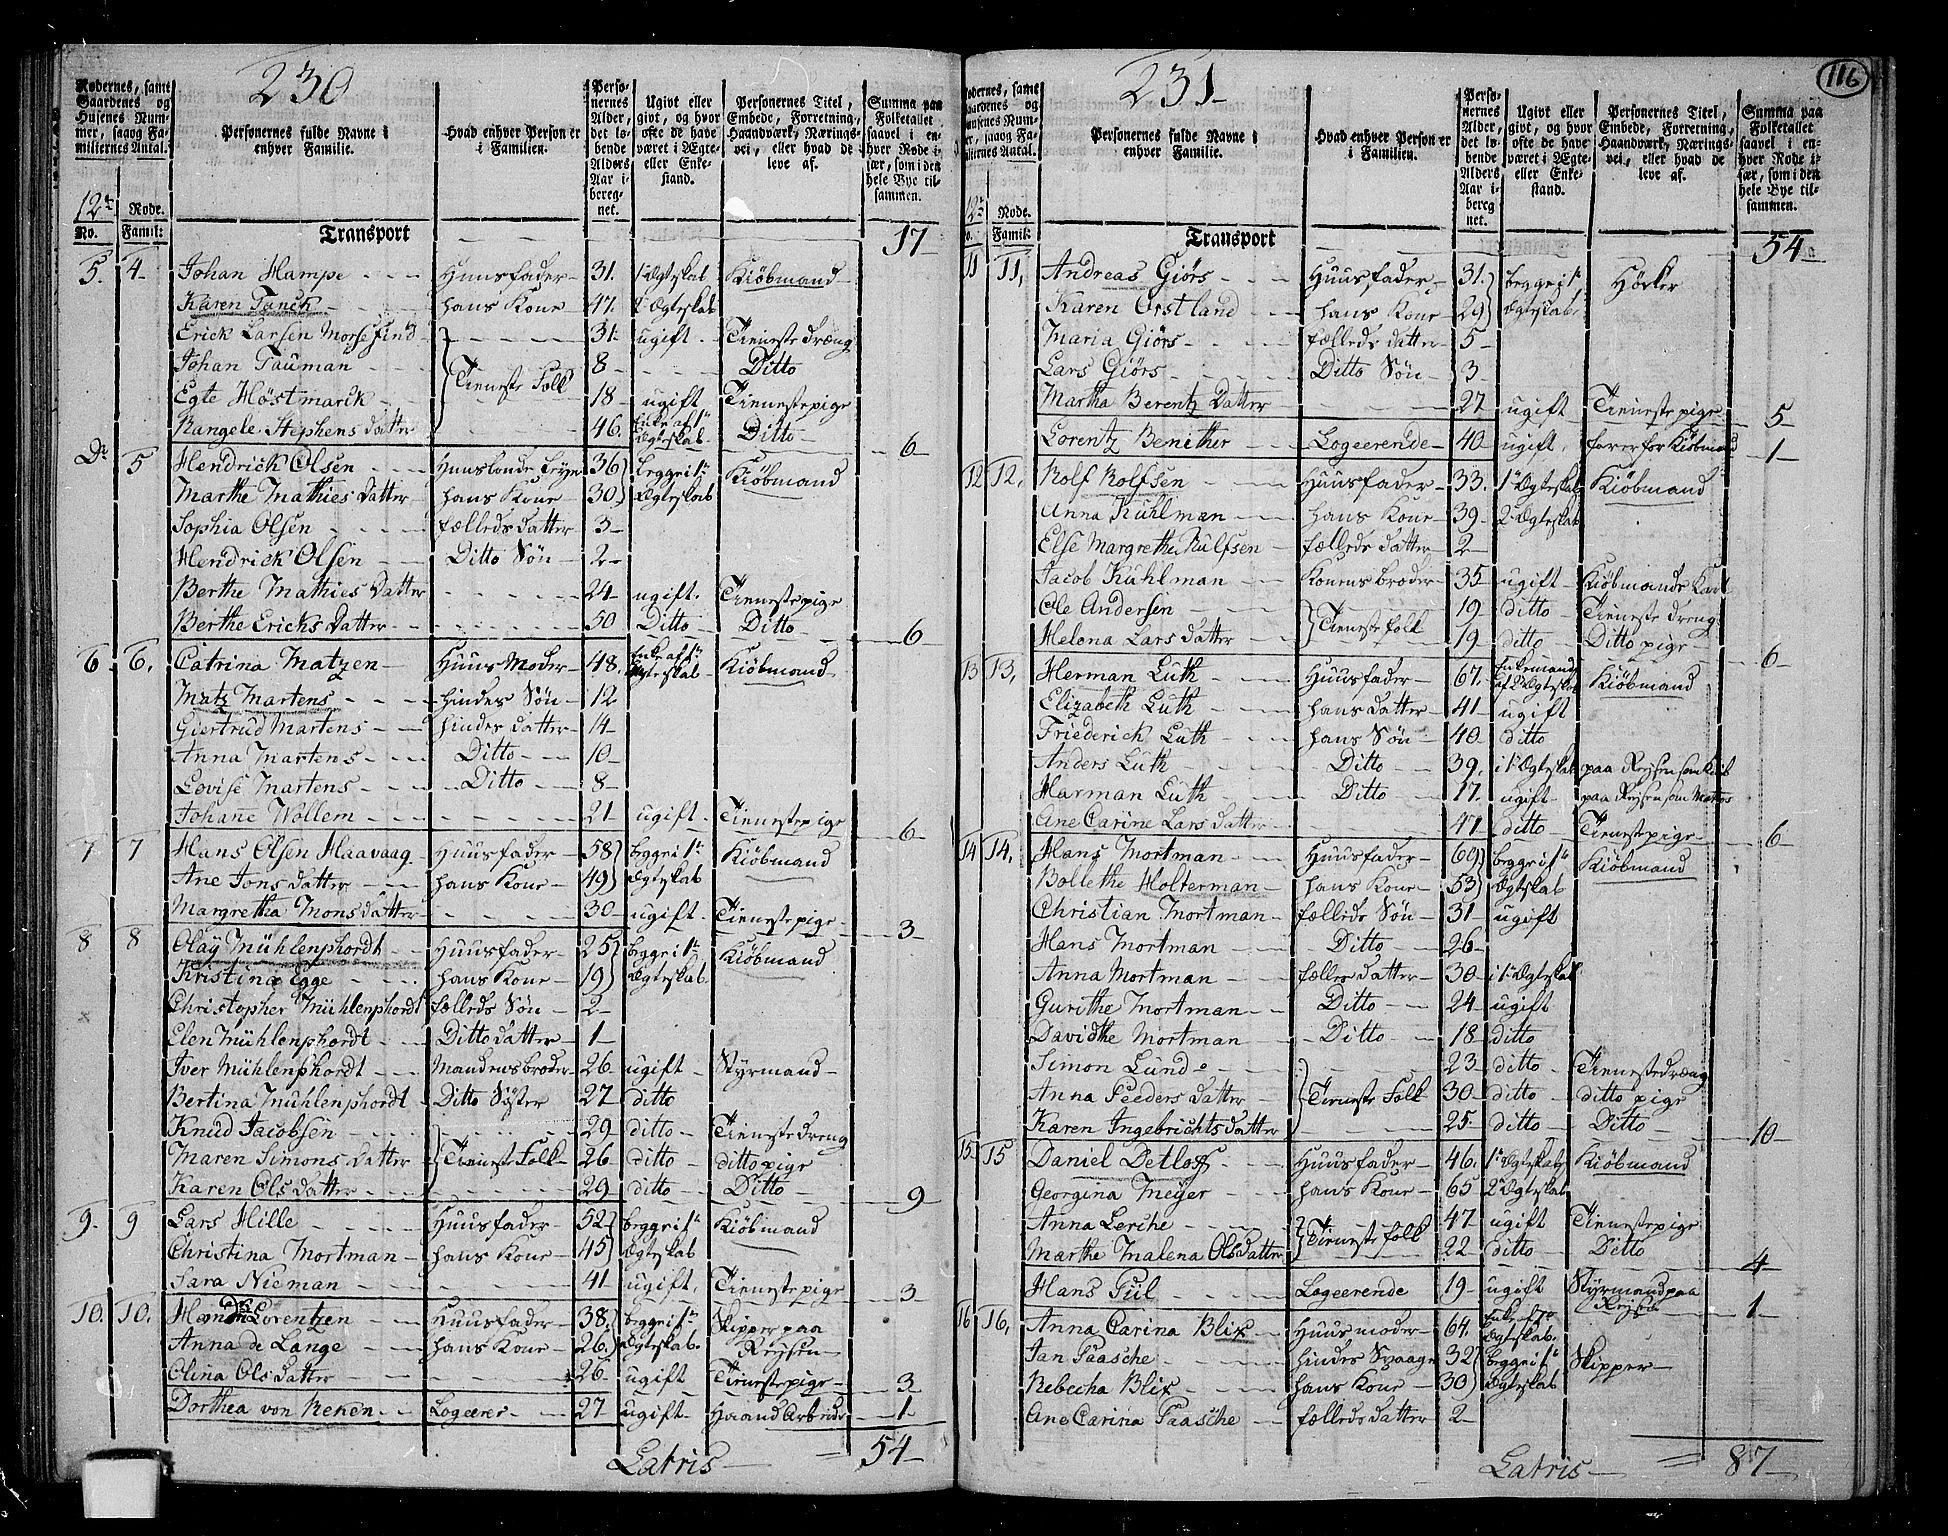 116
230
Rodernes, samt Gaardenes og Husenes Nummer, saaog Familiernes Antal.
Personernes fulde Navne i enhver Familie.
Hvad enhver Person er i Familien.
Personernes Alder, det løbende Alders Aar iberegnet.
Ugivt eller givt, og hvor ofte de have været i Ægte- eller Enkestand.
Personernes Titel, Embede, Forretning, Haandværk, Næringsvei, eller hvad de leve af.
Summa paa Folketallet saavel i enhver Rode især, som i den hele Bye tilsammen.
12te Rode.
No. Famil:
Transport 17
5. 4 Johan Hampe Huusfader 31. 1 Ægteskab Kiøbmand
Karen Tanck hans Kone 47. 2 Ægteskab
Erick Larsen 31 ugift Tieneste dræng
Johan Tauman Tieneste Folk 8 Ditto
Egte Høstmarck 18 ugift Tienestepige
Rangele Stephens datter 46. Enke af 1te Ægteskab Ditto 6
Do 5 Hendrick Olsen 36 begge i 1te Kiøbmand
Marthe Mathies datter hans Kone 30 Ægteskab
Sophia Olsen fælleds datter 3
Hendrick Olsen Ditto Søn 2
Berthe Mathies Datter 24 ugift. Tienestepige
Berthe Erichs Datter 50 Ditto Ditto 6
6 6. Catrina Matzen Huus Moder 48. Enke af 1te Ægteskab Kiøbmand
Matz Martens hindes Søn 12
Giertrud Martens hindes datter 14
Anna Martens Ditto 10
Lovise Martens Ditto 8
Johane Wollem 21 ugift. Tienestepige 6
7 7 Hans Olsen Haavaag Huusfader 58 begge i 1te Kiøbmand
Ane Jons datter hans Kone 49 Ægteskab
Margretha Mons datter 30 ugift. Tienestepige 3
8 8 Olay Mühlenphordt Huusfader 25 begge i 1te Kiøbmand
Kristina Egge hans Kone 19 Ægteskab
Christopher Mühlenphordt fælleds Søn 2
Elen Mühlenphordt Ditto datter 1
Iver Mühlenphordt Mandens broder 26 ugift Styrmand
Bertina Mühlenphordt Ditto Søster 27 ditto
Knud Jacobsen 29 ditto Tieneste dreng
Maren Simons datter Tieneste Folk 26 ditto ditto pige
Karen Ols datter 29 ditto Ditto 9
9. 9 Lars Hille Huusfader 52 begge i 1te Kiøbmand
Christina Mortman hans Kone 45 Ægteskab
Sara Nieman 41 ugift Tienestepige 3
10. 10. Lorentzen Huusfader 38. begge i 1te Skipper paa
Anna de Lange hans Kone 26. Ægteskab. Reysen
Olina Ols datter 26 ugift Tienestepige 3
Dorthea von Reken Logeerer 27 ugift Haand Arbeide 1
Latris = 54
231
Rodernes, samt Gaardenes og Husenes Nummer, saaog Familiernes Antal.
Personernes fulde Navne i enhver Familie.
Hvad enhver Person er i Familien.
Personernes Alder, det løbende Alders Aar iberegnet.
Ugivt eller givt, og hvor ofte de have været i Ægte- eller Enkestand.
Personernes Titel, Embede, Forretning, Haandværk, Næringsvei, eller hvad de leve af.
Summa paa Folketallet saavel i enhver Rode især, som i den hele Bye tilsammen.
12te Rode.
No. Famil:
Transport 54
11 11, Andreas Giørs Huusfader 31. begge i 1te Höcker
Karen Orstland hans Kone 29 Ægteskab.
Maria Giørs fælleds datter 5
Lars Giørs Ditto Søn 3
Martha Berentz Datter 27 ugift Tieneste pige 5
Lorentz Benither Logeerende 40 ugift. farer for Kiøbmand 1
12 12, Rolf Rolfsen Huusfader 33. 1te Ægteskab Kiøbmand
Anna Kühlman hans Kone 39 2 Ægteskab
Else Margretha Rulfsen fælleds datter 2
Jacob Kühlman Konens broder 35 ugift Kiøbmands Karl
Ole Andersen Tieneste folk 19 ditto Tieneste dreng
Helena Lars datter 19 ditto Ditto pige 6
13 13, Herman Luth Huusfader 67. Enkemand af 2 Ægteskab Kiøbmand
Elizabeth Luth hans datter 41 ugift
Friederich Luth hans Søn 40 ditto
Anders Luth Ditto 39. i 1te Ægteskab paa Reysen
Harman Luth Ditto 17. ugift paa Reysen som Matros
Ane Carine Lars datter 47 ditto Tienestepige 6
14 14. Hans Mortman Huusfader 60 begge i 1te Kiøbmand
Bollethe Holterman hans Kone 53 Ægteskab
Christian Mortman fælleds Søn 31 ugift
Hans Mortman Ditto 26
Anna Mortman fælles datter 30 i 1te Ægteskab
Gurithe Mortman Ditto 24 ugift
Davidthe Mortman Ditto 18 ditto
Simon Lund 23 ditto Tienestedræng
Anna Peeders datter Tieneste Folk 30 ditto ditto pige
Karen Ingebrichts datter 25. ditto Ditto 10
15 15 Daniel Detloff Huusfader 46. 1te Ægteskab Kiøbmand
Georgina Meyer hans Kone 65 2 Ægteskab
Anna Lerche Tieneste folk 47 ugift Tienestepige
Marthe Malena Ols datter 22 ditto Ditto 4
Hans Piil Logeerende 19 ugift Styrmand paa Reysen 1
16 16, Anna Carina Blix Huusmoder 64. Enke Ægteskab.
Jan Paasche hindes Svaager 32 begge i 1te Skipper
Rebecha Blix hans Kone 30 Ægteskab
Ane Carina Paasche fælleds datter 2
Latris = 87